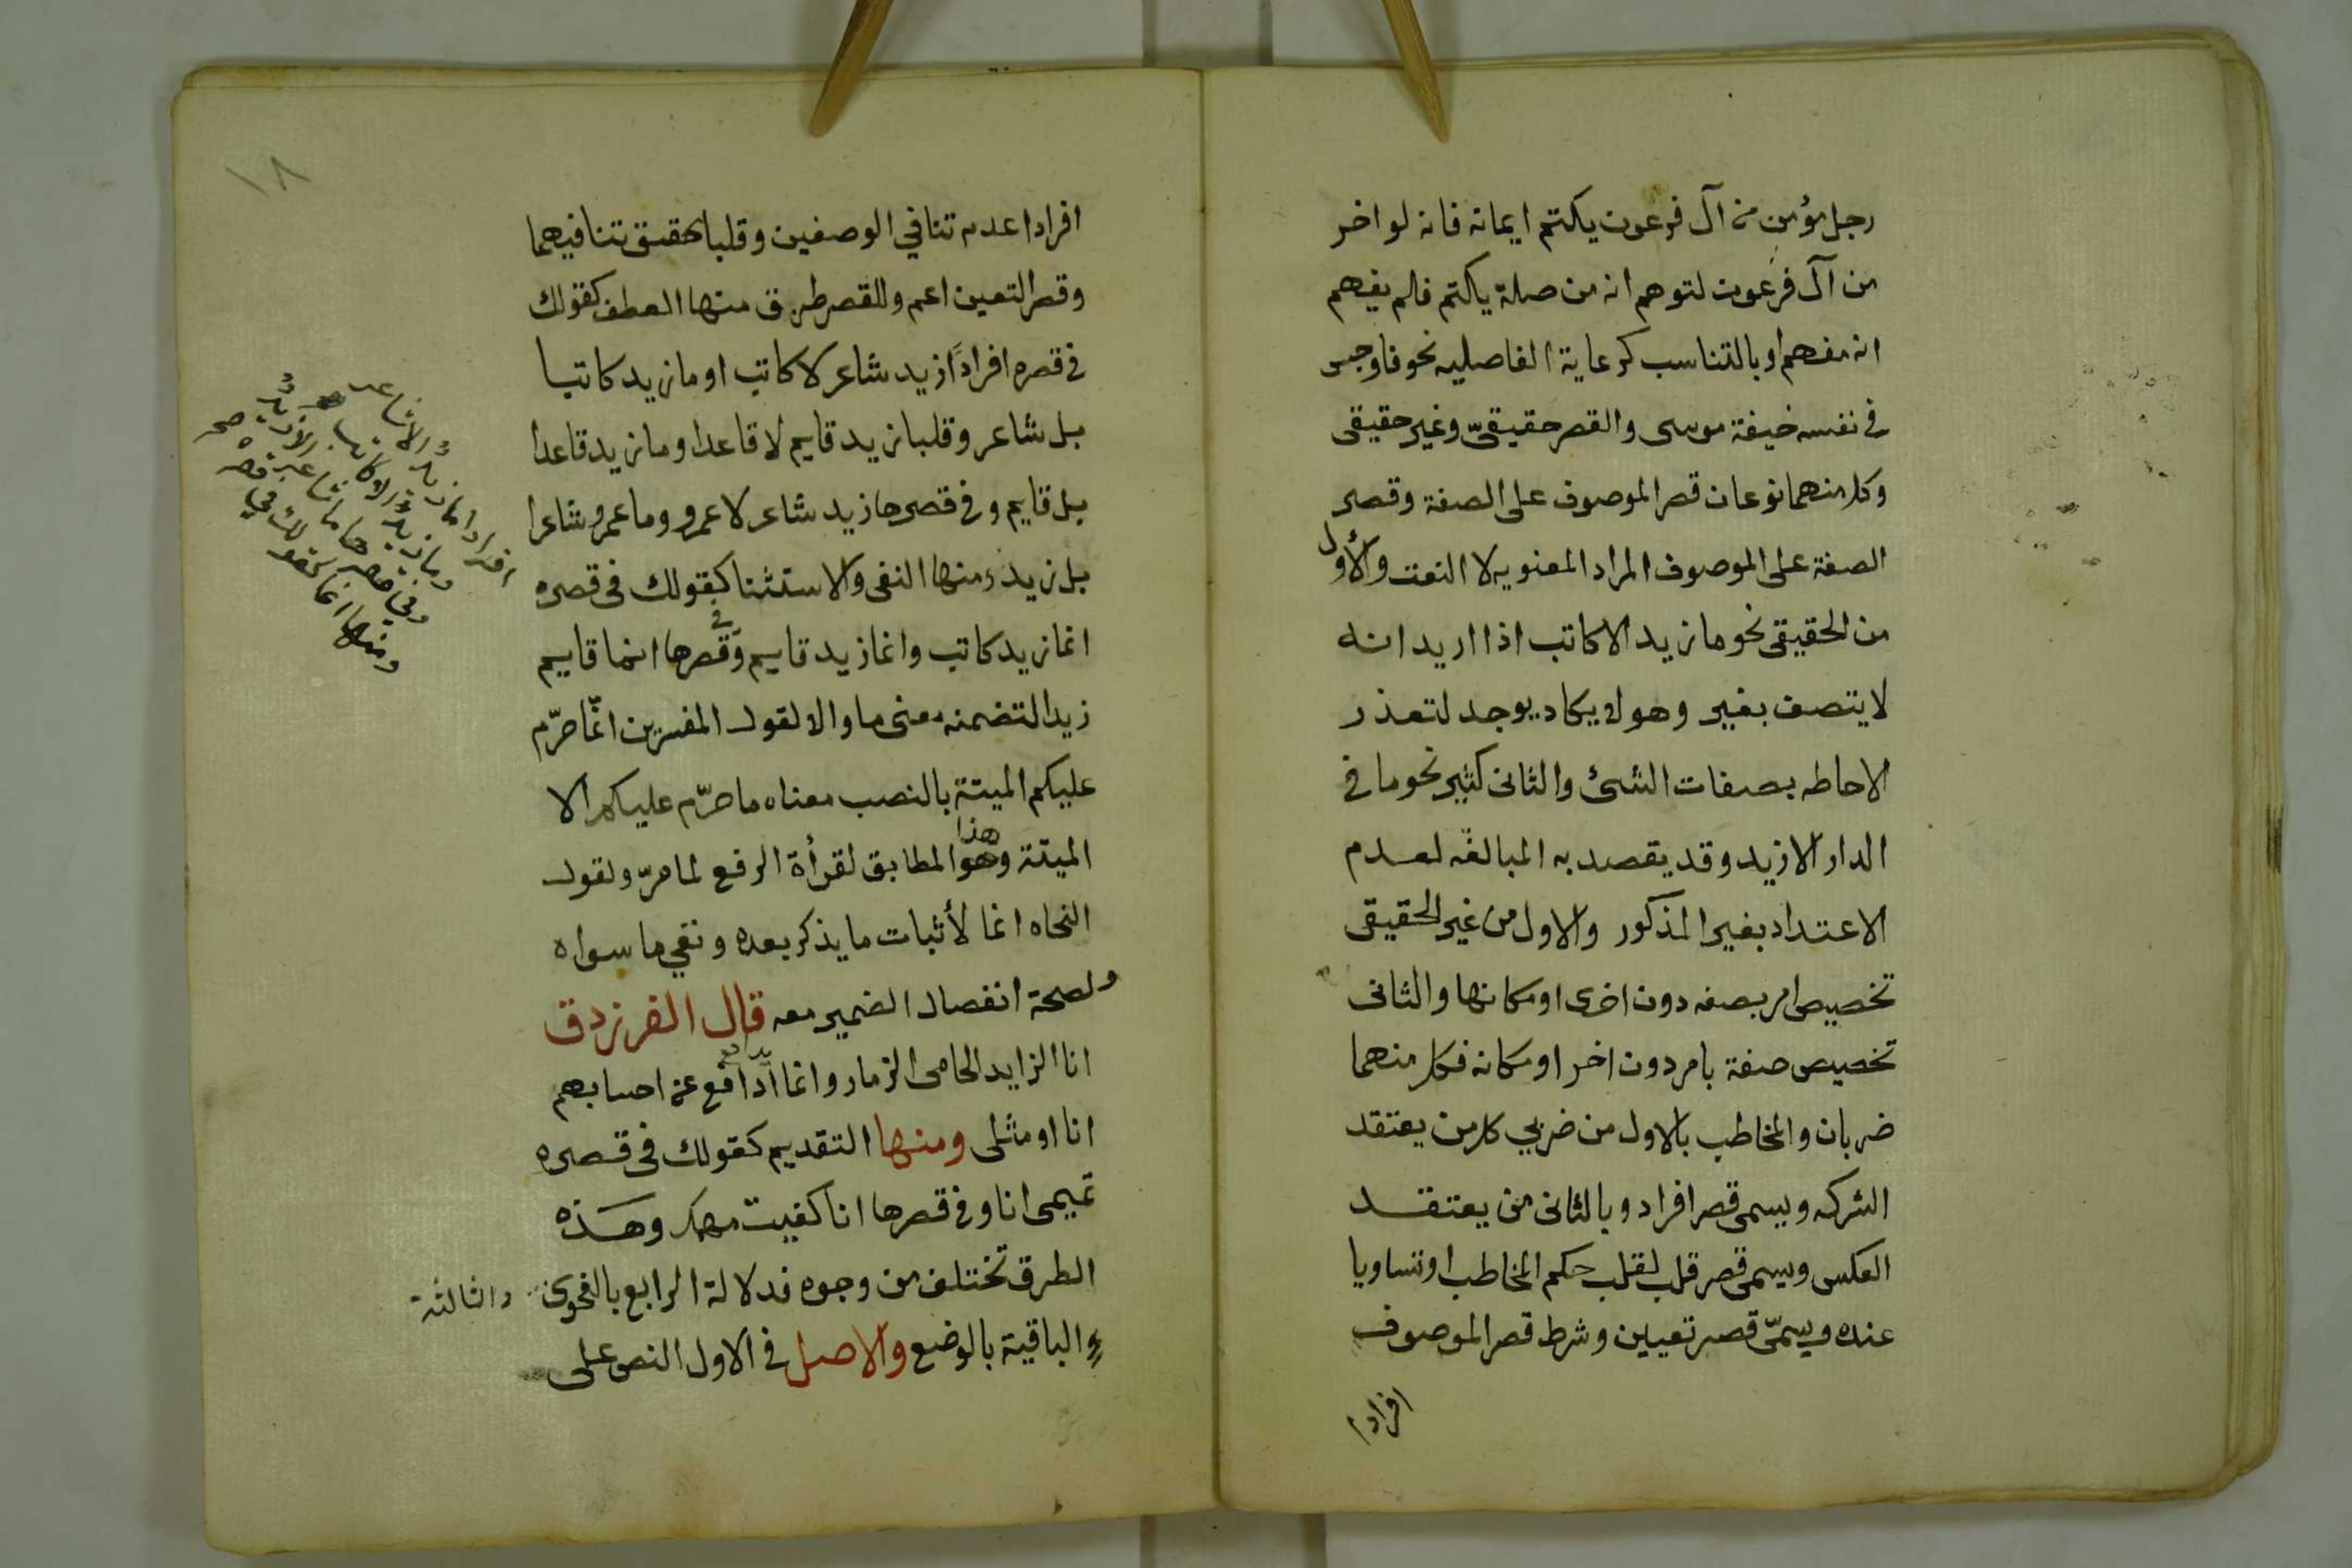 رجل مؤمن من آل فرعون يكتم ايمانه فانه لو اخر
من آل فرعون لتوهم انه من صلة يكتم فلم يفهم
انه منهم او بالتناسب كرعاية الفاصليه نحو فاوجس
فى نفسه خيفة موسى والقصر حقيقىّ وغير حقيقى
وكل منهما نوعان قصر الموصوف على الصفة وقصر
الصفة على الموصوف المراد المعنويه لا النعت والأول
من الحقيقى نحو ما زيد الا كاتب اذا اريد انه
لا يتصف بغير وهو لا يكاد يوجد لتعذر
الاحاطه بصفات الشئ والثانى كثير نحو ما فى
الدار الا زيد وقد يقصد به المبالغه لعدم
الاعتداد بغير المذكور والاول من غير الحقيقى
تخصيص امر بصفه دون اخرى او مكانها والثانى
تخصيص صفة بامر دون اخر او مكانه فكل منهما
ضربان والمخاطب بالاول من ضربي كل من يعتقد
الشركه ويسمى قصر افراد وبالثانى من يعتقد
العكس ويسمى قصر قلب لقلب حكم المخاطب او تساويا
عنده ويسمّى قصر تعيين وشرط قصر الموصوف
افرادا
١٨
افرادا عدم تنافي الوصفين وقلبا تحقيق تنافيهما
وقصر التعين اعم وللقصر طرق منها العطف كقولك
فى قصره افرادًا زيد شاعر لا كاتب او ما زيد كاتبا
بل شاعر وقلبا زيد قايم لا قاعدا وما زيد قاعدا
بل قايم وفى قصرها زيد شاعر لا عمرو وما عمرو شاعرا
بل زيد ومنها النفى والاستثنا كقولك فى قصره
انما زيد كاتب وانما زيد قايم وفى قصرها انما قايم
زيد لتضمنه معنى ما والا لقول المفسرين انّما حرّم
عليكم الميتة بالنصب معناه ما حرّم عليكم الا
الميتة وهو هذا المطابق لقرأة الرفع لما مرّ ولقول
النحاه انما لأثبات ما يذكر بعده ونفي ما سواه
ولصحة انفصال الضمير معه قال الفرزدق
انا الزايد الحامى الزمار وانما ادافع يدافع عن احسابهم
انا او مثلى ومنها التقديم كقولك فى قصره
تميمى انا وفى قصرها انا كفيت مهمك وهذه
الطرق تختلف من وجوه فدلالة الرابع بالفحوى
والباقية بالوضع والاصل فى الاول النص على
والثالثة
افرادا ما زيد الا شاعر
وما زيد الا
وفي قصرها ما شاعر الا زيد
ومنها انما كقولك في قصره صح